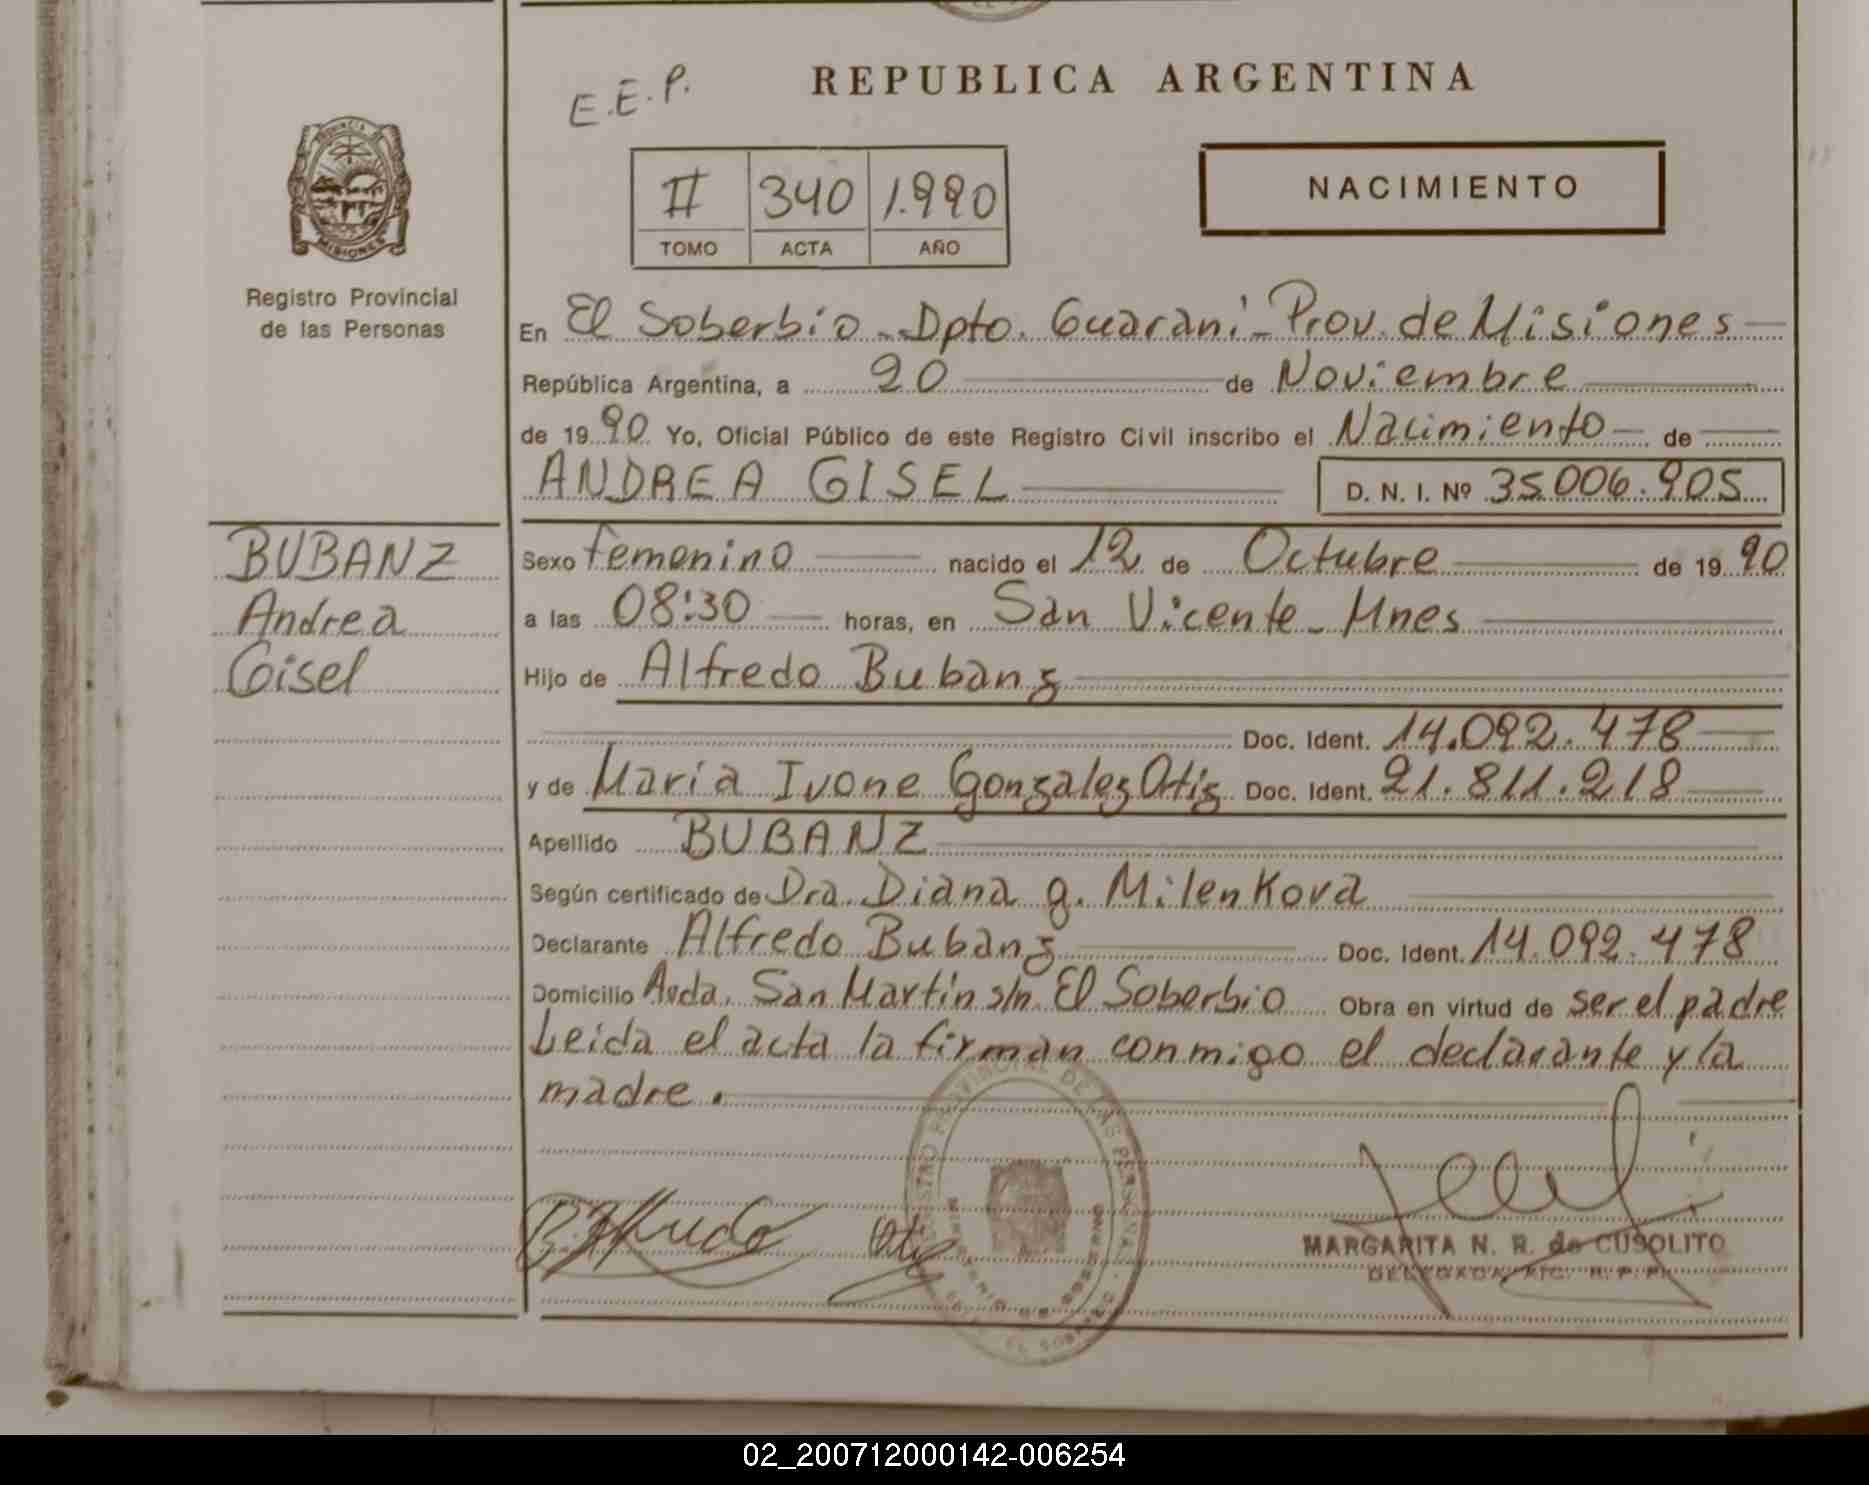 REPUBLICA ARGENTINA
E.E.P.
II 340 1.990
TOMO ACTA AÑO
NACIMIENTO
PROVINCIA DE
MISIONES
Registro Provincial
de las Personas
En El Soberbio - Dpto. Guaraní - Prov. de Misiones
República Argentina, a 20 de Noviembre
de 1990 Yo, Oficial Público de este Registro Civil inscribo el Nacimiento de
ANDREA GISEL D. N. I. Nº 35.006.905
BUBANZ
Andrea
Gisel
Sexo femenino nacido el 12 de Octubre de 1990
a las 08:30 horas, en San Vicente - Mnes
Hijo de Alfredo Bubanz
Doc. Ident. 14.092.478
y de María Ivone Gonzalez Ortiz Doc. Ident. 21.811.218
Apellido BUBANZ
Según certificado de Dra. Diana g. Milenkova
Declarante Alfredo Bubanz Doc. Ident. 14.092.478
Domicilio Avda. San Martín s/n. El Soberbio Obra en virtud de ser el padre
Leida el acta la firman conmigo el declarante y la
madre.
REGISTRO PROVINCIAL DE LAS PERSONAS
EL SOBERBIO
B. Alfredo
MARGARITA N. R. de CUSOLITO
02_200712000142-006254